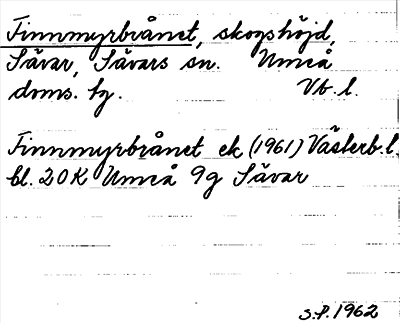 Finnmyrbrånet, skogshöjd,
Sävar, Sävars sn. Umeå
doms. tg. Vb. l.
Finnmyrbrånet ek (1961) Västerb. l.
bl. 20K Umeå 9g Sävar
S.P. 1962